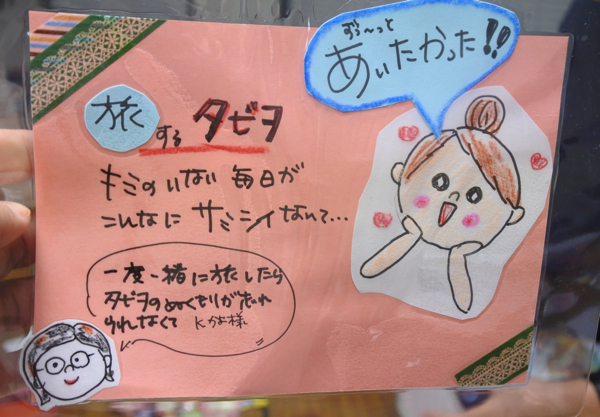 ずぅ〜っと
あいたかった!!
旅するタビヲ
キミのいない毎日が
こんなにサミシイなんて…
一度一緒に旅したら
タビヲのぬくもりが忘れ
られなくて Kかよ様